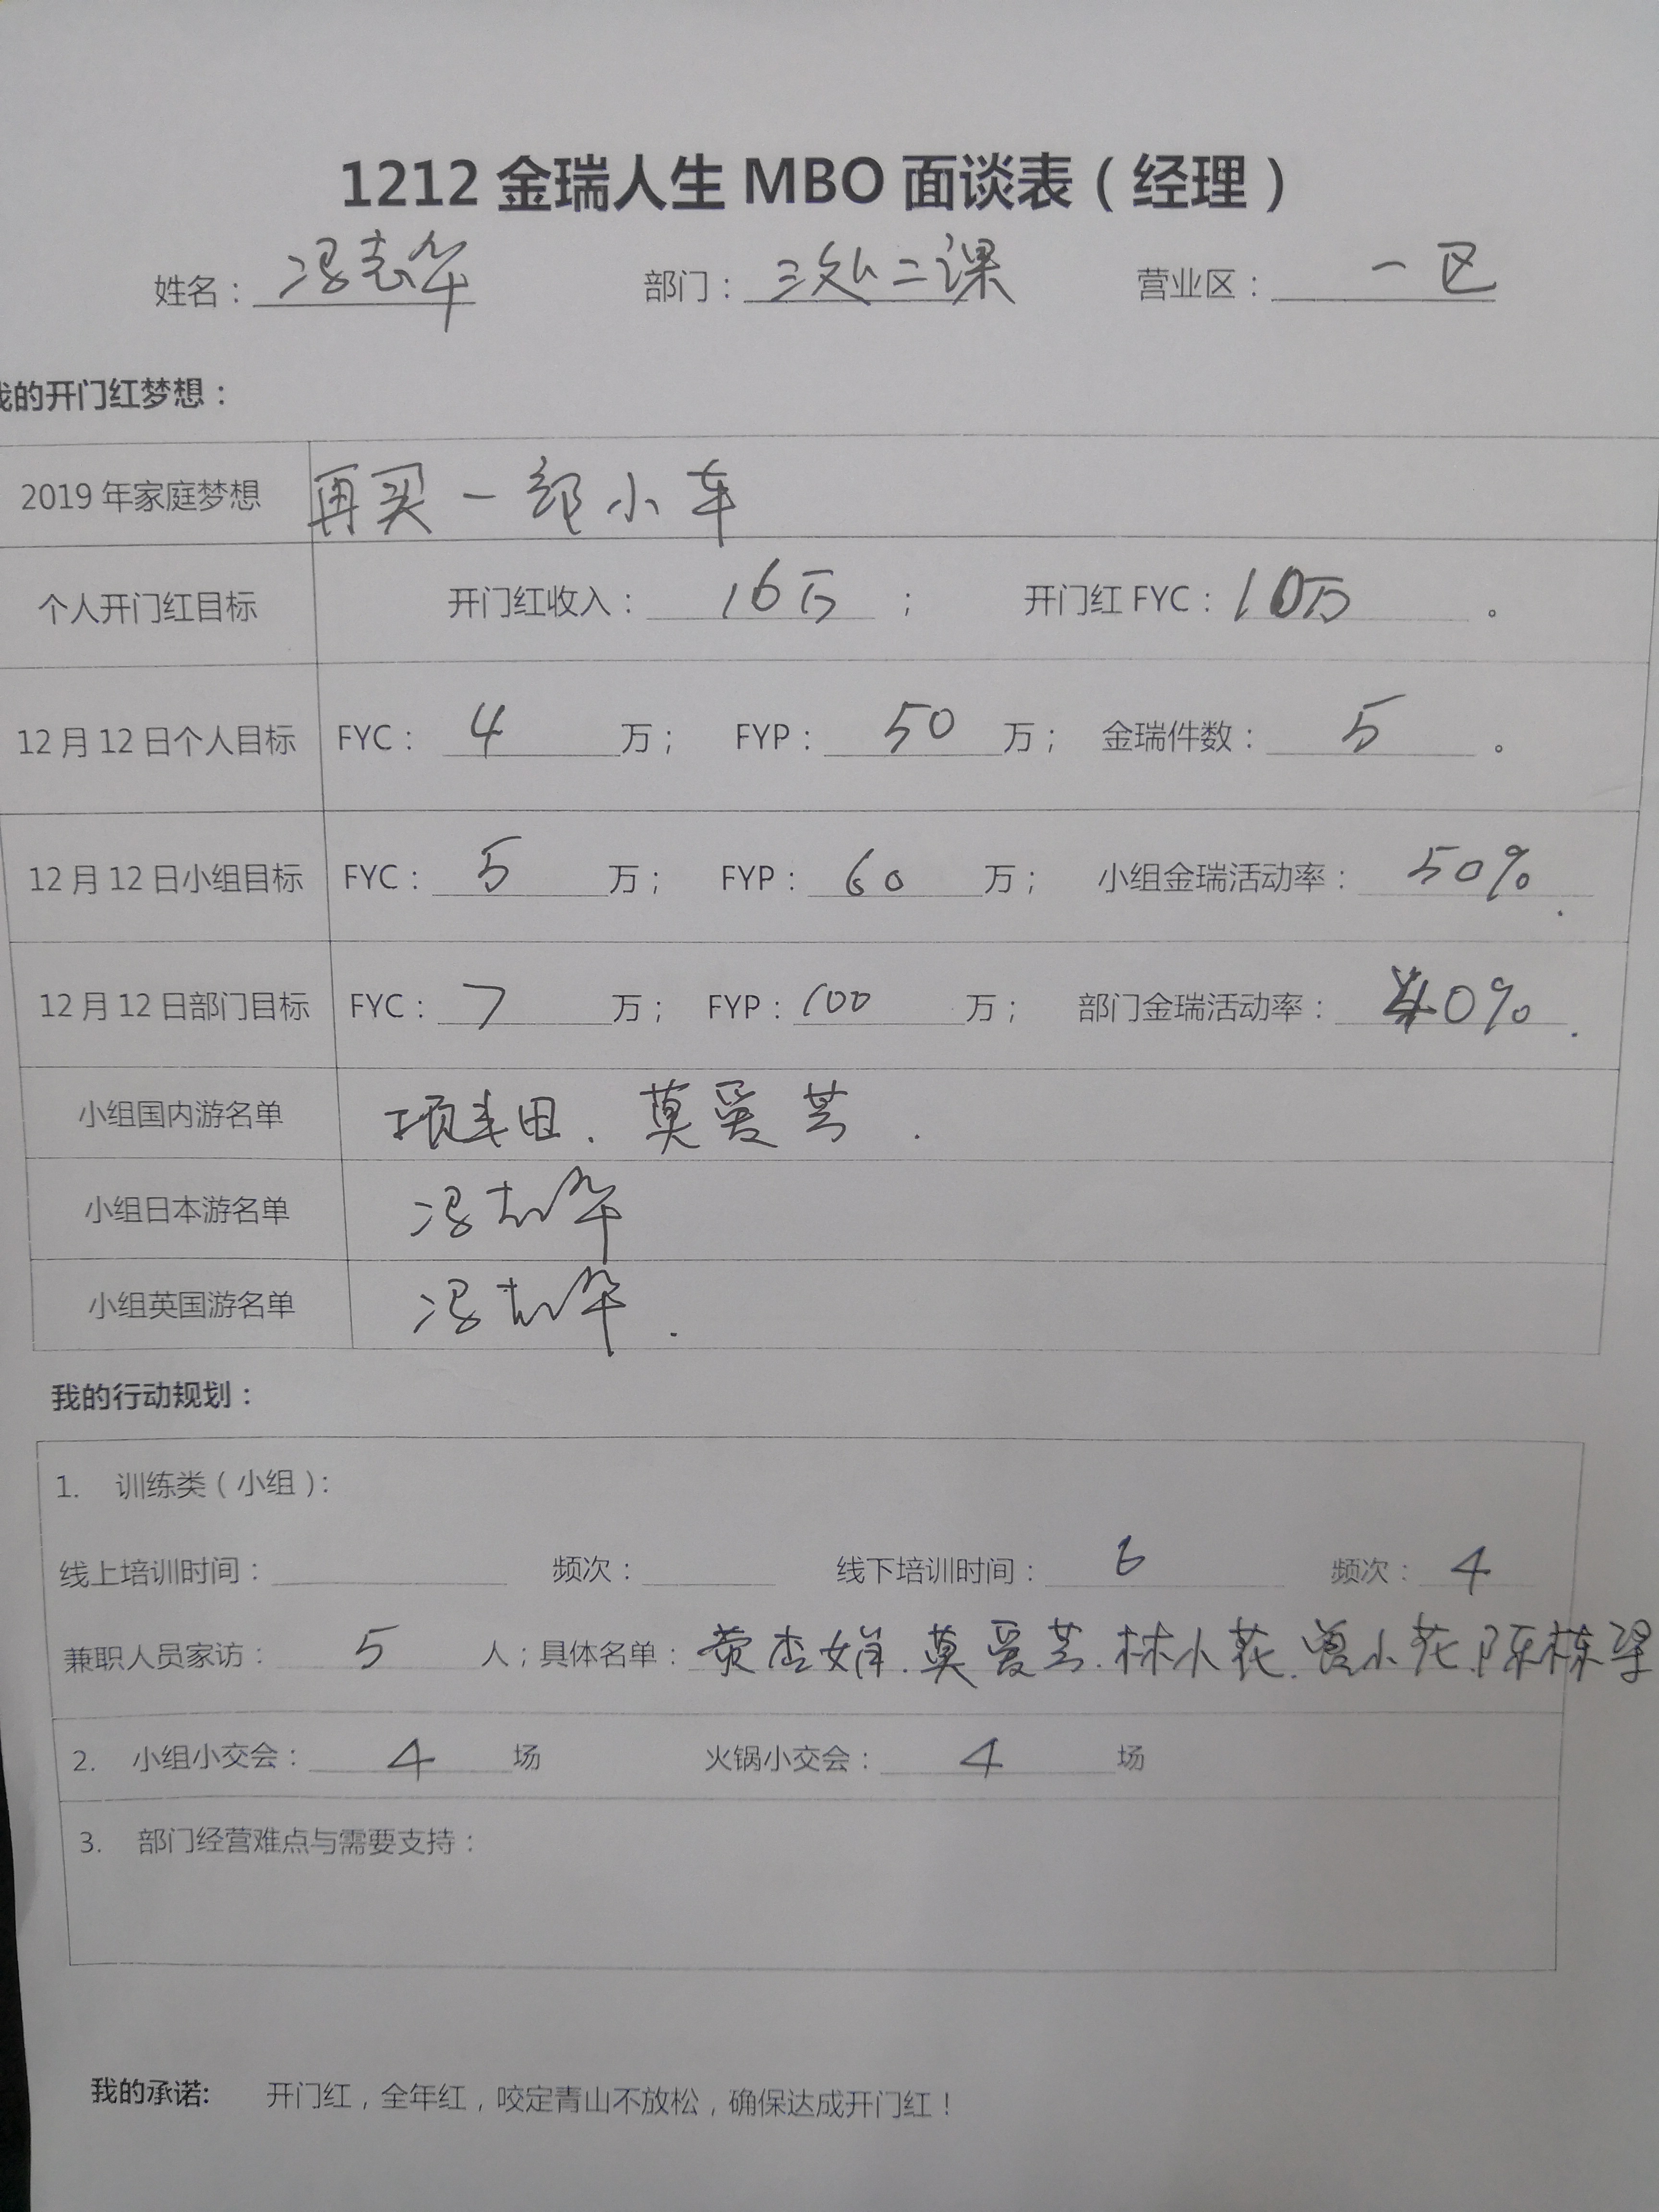 1212 金瑞人生 MBO 面谈表（经理）
姓名：冯志华 部门：三处二课 营业区：一区
我的开门红梦想：
2019 年家庭梦想 再买一部小车
个人开门红目标 开门红收入：16万； 开门红 FYC：10万。
12 月 12 日个人目标 FYC：4万； FYP：50万； 金瑞件数：5。
12 月 12 日小组目标 FYC：5万； FYP：60万； 小组金瑞活动率：50%.
12 月 12 日部门目标 FYC：7万； FYP：100万； 部门金瑞活动率：40%.
小组国内游名单 莫爱芳.
小组日本游名单 冯志华
小组英国游名单 冯志华.
我的行动规划：
1. 训练类（小组）：
线上培训时间： 频次： 线下培训时间：6 频次：4
兼职人员家访：5人；具体名单：莫爱芳.林小花.曾小花.陈栋梁
2. 小组小交会：4场 火锅小交会：4场
3. 部门经营难点与需要支持：
我的承诺: 开门红，全年红，咬定青山不放松，确保达成开门红！